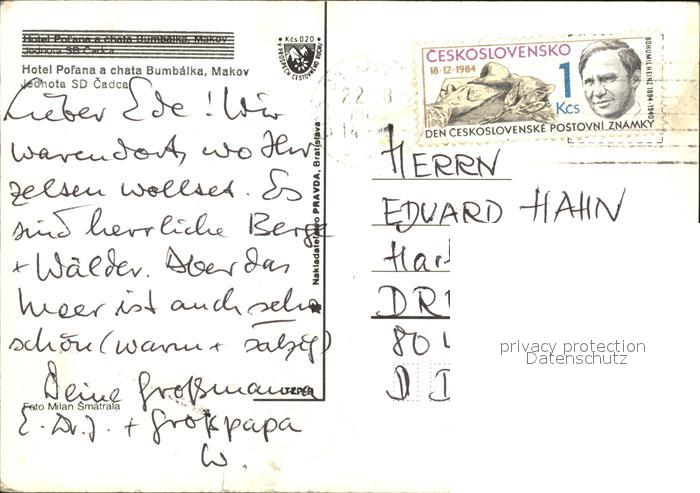 Hotel Poľana a chata Bumbálka, Makov
Jednota SD Čadca
Hotel Poľana a chata Bumbálka, Makov
Jednota SD Čadca
Lieber Ede! Wir
waren dort, wo Ihr
zelten wolltet. Es
sind herrliche Berge
+ Wälder. Aber das
Meer ist auch sehr
schön (warm + salzig)
Deine Großmama
E. Dr. J. + Großpapa
W.
Foto Milan Šmátrala
Kčs 0,20
Nakladateľstvo PRAVDA, Bratislava
ČESKOSLOVENSKO
18.12.1984
1
Kčs
BOHUMIL HEINZ 1894-1940
DEN ČESKOSLOVENSKÉ POŠTOVNÍ ZNÁMKY
HERRN
EDUARD HAHN
Har
DR
80
D D
privacy protection
Datenschutz